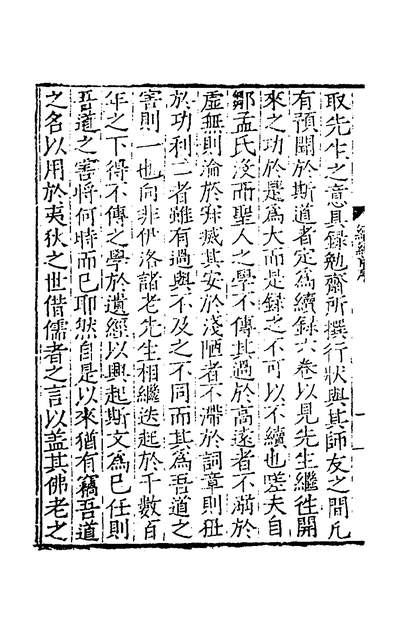 取先生之意具録勉齋所撰行狀與其師友之間凡
有預聞於斯道者定為續録六卷以見先生繼徃開
來之功於是為大而是録之不可以不續也嗟夫自
鄒孟氏沒而聖人之學不傳其過於高遠者不溺於
虛無則淪於寂滅其安於淺陋者不滯於詞章則狃
於功利二者雖有過與不及之不同而其為吾道之
害則一也向非伊洛諸老先生相繼迭起於千數百
年之下得不傳之學於遺經以興起斯文為已任則
吾道之害將何時而已耶然自是以來猶有竊吾道
之名以用於夷狄之世借儒者之言以蓋其佛老之